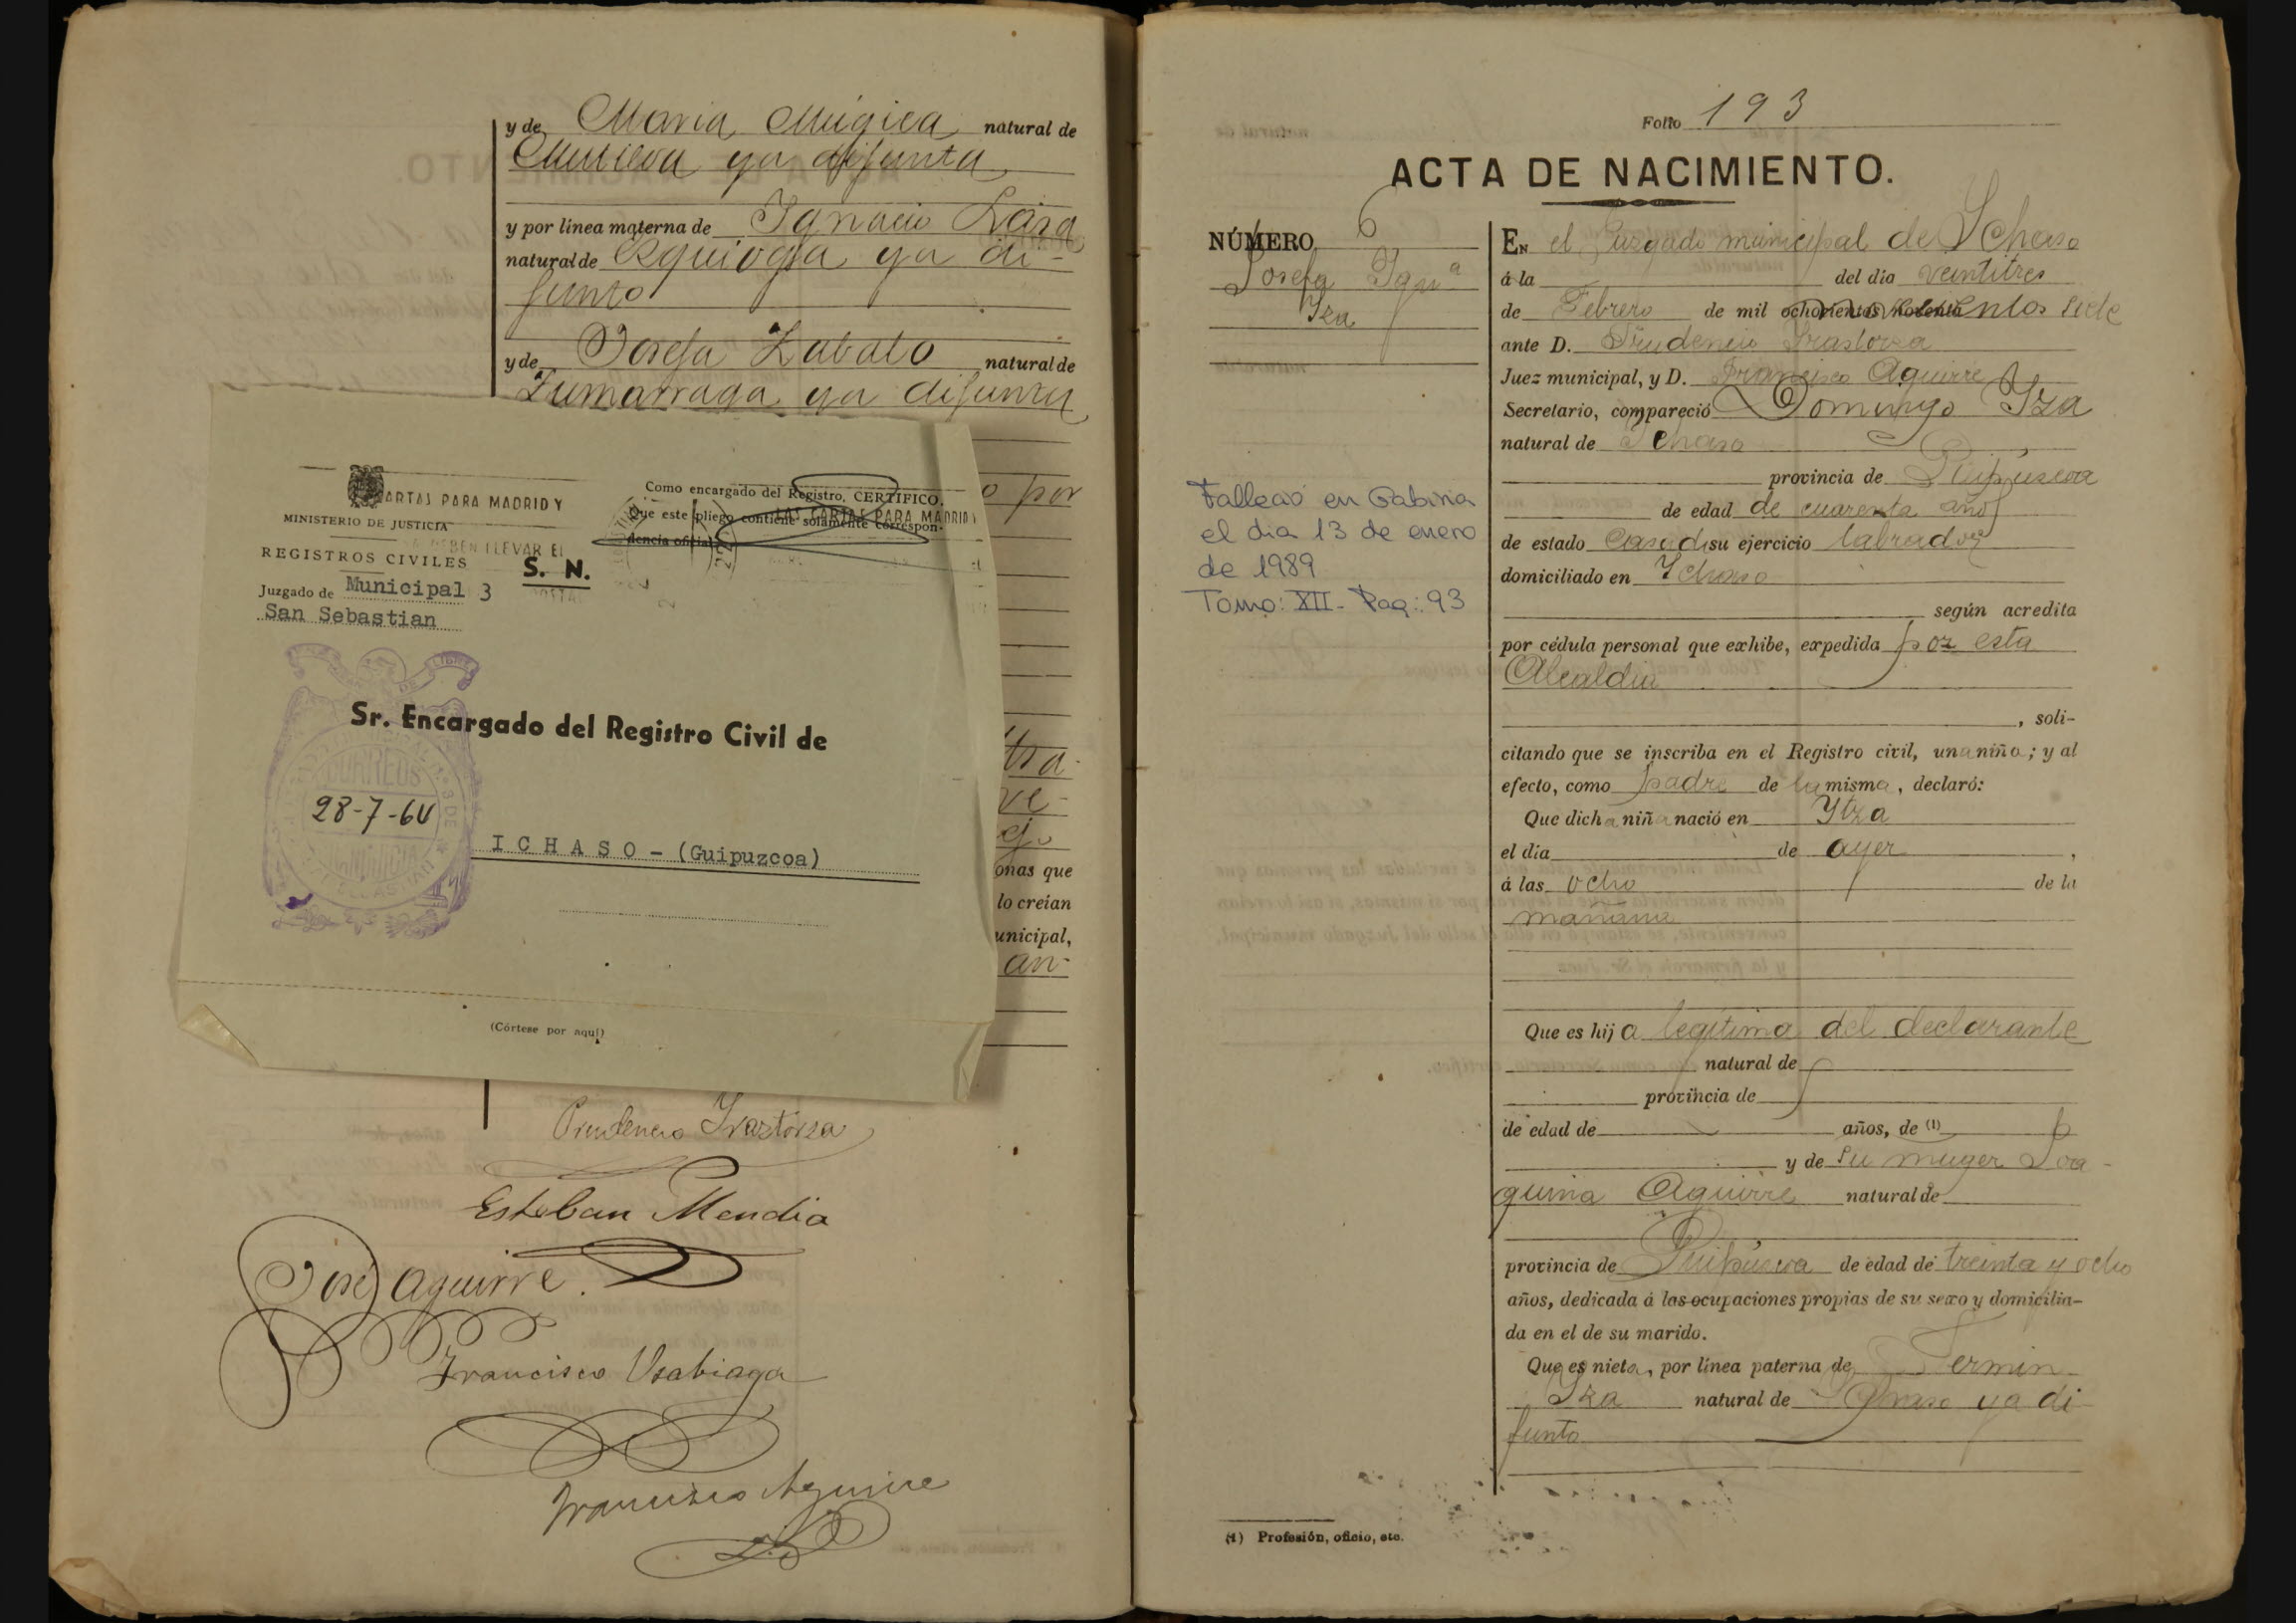 y de Maria Múgica natural de
Mutiloa ya difunta
y por línea materna de Ignacio Lasa
natural de Ezquioga ya di-
funto
y de Josefa Zabalo natural de
Zumarraga ya difunta
o por
CARTAS PARA MADRID Y
MINISTERIO DE JUSTICIA
DEBEN LLEVAR EL
REGISTROS CIVILES
S. N.
Juzgado de Municipal 3
San Sebastian
Como encargado del Registro, CERTIFICO.
Que este pliego contiene solamente correspon-
LAS CARTAS PARA MADRID
dencia oficial
Sr. Encargado del Registro Civil de
CORREOS
28-7-64
ICHASO - (Guipuzcoa)
(Córtese por aquí)
tra-
ve-
onas que
lo creían
unicipal,
an-
Prudencio Yraztorza
Esteban Mendia
José Aguirre.
Francisco Usabiaga
Francisco Aguirre
Folio 193
ACTA DE NACIMIENTO.
NÚMERO 6
Josefa Ignª
Iza
Falleció en Gabiria
el dia 13 de enero
de 1989
Tomo: XII - Pag: 93
EN el Juzgado municipal de Ichaso
á la del dia veintitres
de Febrero de mil ochocientos noventa novecientos siete
ante D. Prudencio Yraztorza
Juez municipal, y D. Francisco Aguirre
Secretario, compareció Domingo Iza
natural de Ichaso
provincia de Guipúscoa
de edad de cuarenta años
de estado casado su ejercicio labrador
domiciliado en Ychaso
según acredita
por cédula personal que exhibe, expedida por esta
Alcaldia
, soli-
citando que se inscriba en el Registro civil, una niña; y al
efecto, como padre de la misma, declaró:
Que dicha niña nació en Ytza
el dia de ayer,
á las ocho de la
mañana
Que es hija legitima del declarante
natural de
provincia de
de edad de años, de (1)
y de su muger Joa-
quina Aguirre natural de
provincia de Guipúscoa de edad de treinta y ocho
años, dedicada á las ocupaciones propias de su sexo y domicilia-
da en el de su marido.
Que es nieta, por línea paterna de Fermin
Iza natural de Ichaso ya di-
funto
(1) Profesión, oficio, etc.